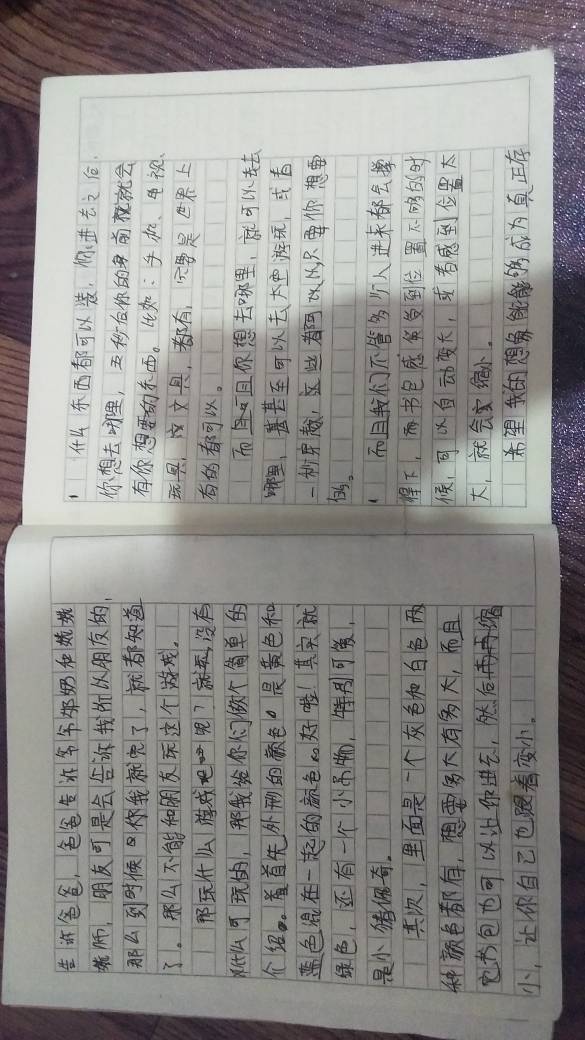 告诉爸爸，爸爸告诉爷爷奶奶和姥姥
姥师，朋友可是会告诉我所以朋友的，
那么到时候你我就完了，就都知道
了。那么不能和朋友玩这个游戏。
那玩什么游戏呢？就玩，没有
什么可玩的，那我给你们做个简单的
介绍。首先外形的颜色，是黄色和
蓝色混在一起的颜色。好啦！其实就
绿色，还有一个小吊物，特别可爱，
是小猪佩奇。
其次，里面是一个灰色加白色两
种颜色都有，想要多大有多大，而且
它书包也可以让你进去，然后再缩
小，让你自己也跟着变小。
什么东西都可以装，你进去之后，
你想去哪里，五秒后你的身前就会
有你想要的东西。比如：手机、电视、
玩具，文具，都有，只要是世界上
有的都可以。
而且你想去哪里，就可以去
哪里，甚至可以去大巴游玩，或者
一秒穿越，这些都可以，只要你想要
的。
而且我们不管多少人进来都会撑
得下，而书包感觉受到位置不够的时
候，可以自动变大，或者感到位置太
大，就会变缩小。
希望我的想象能够成为真正存